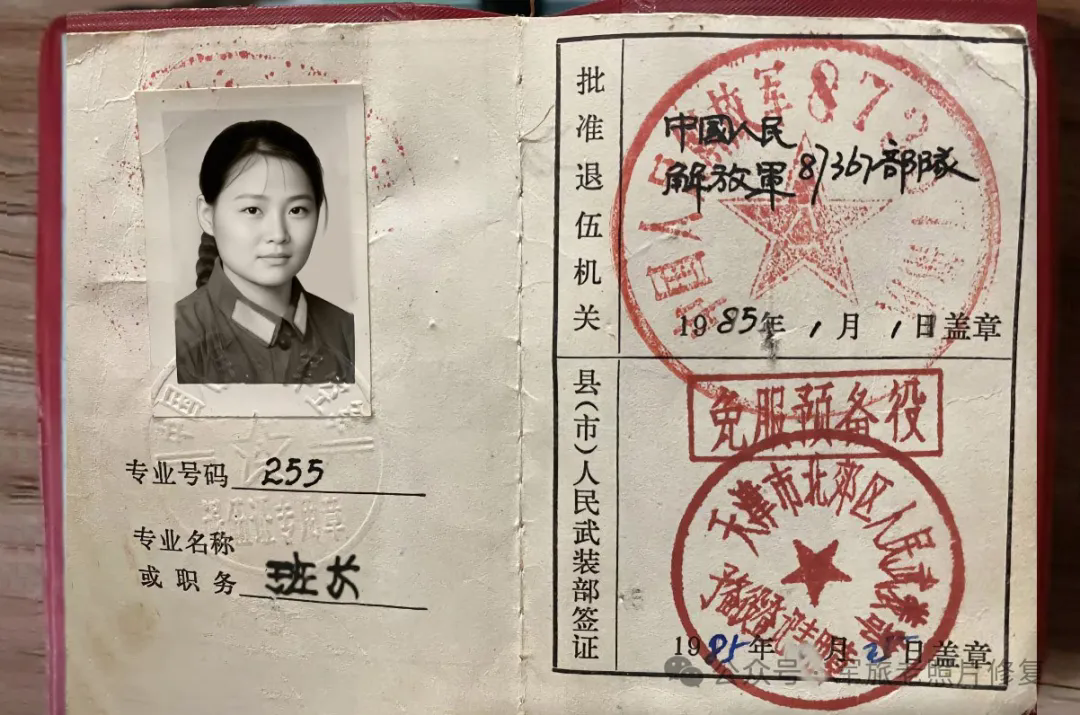 专业号码 255
专业名称
或职务 班长
批准退伍机关
中國人民
解放軍87367部隊
1985年1月1日盖章
县(市)人民武装部签证
免服预备役
天津市北郊区人民武装部
1985年 月 日盖章
公众号 军旅老照片修复